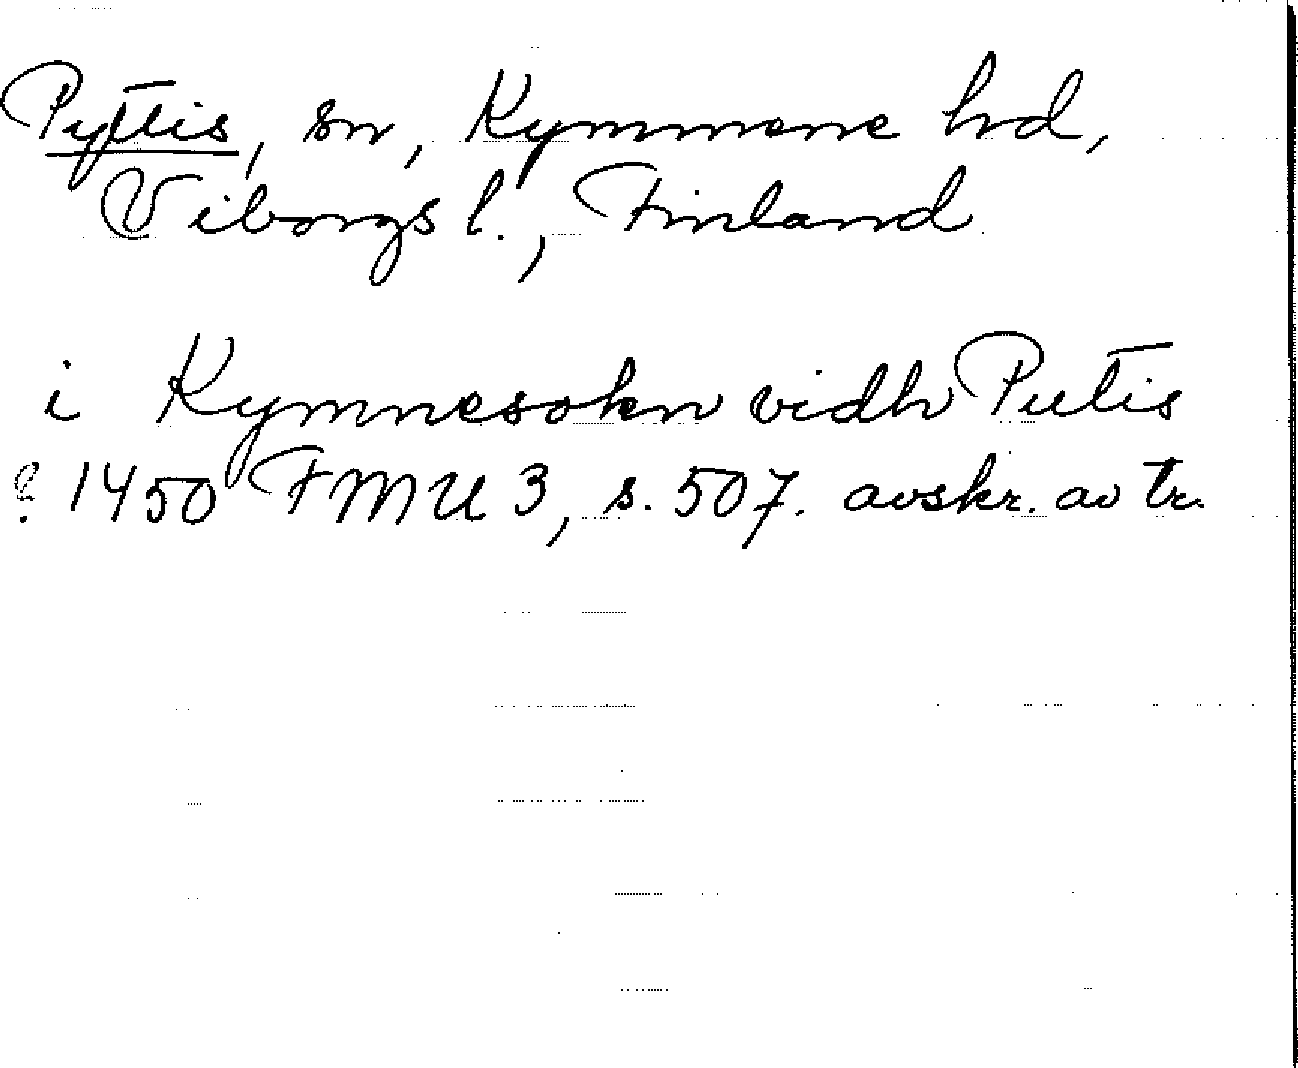 Pyttis, sn, Kymmene hd,
Viborgs l., Finland
i Kymnesokn vidh Putis
? 1450 FMU 3, s. 507. avskr. av tr.